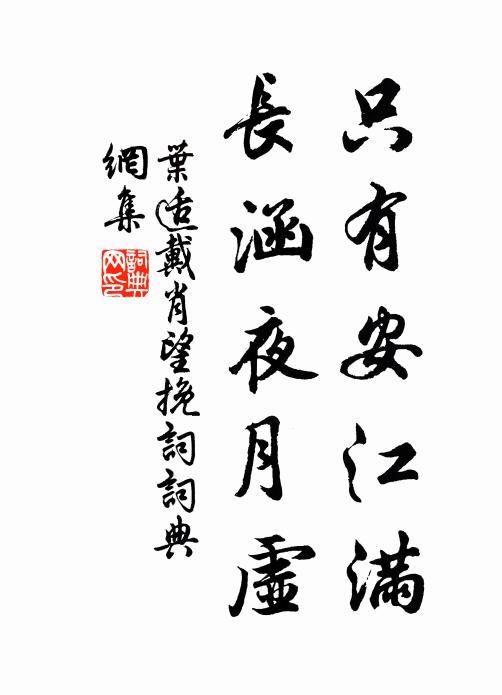 只有安江滿
長涵夜月虛
葉适戴肖望挽詞詞典
網集
詞典網印